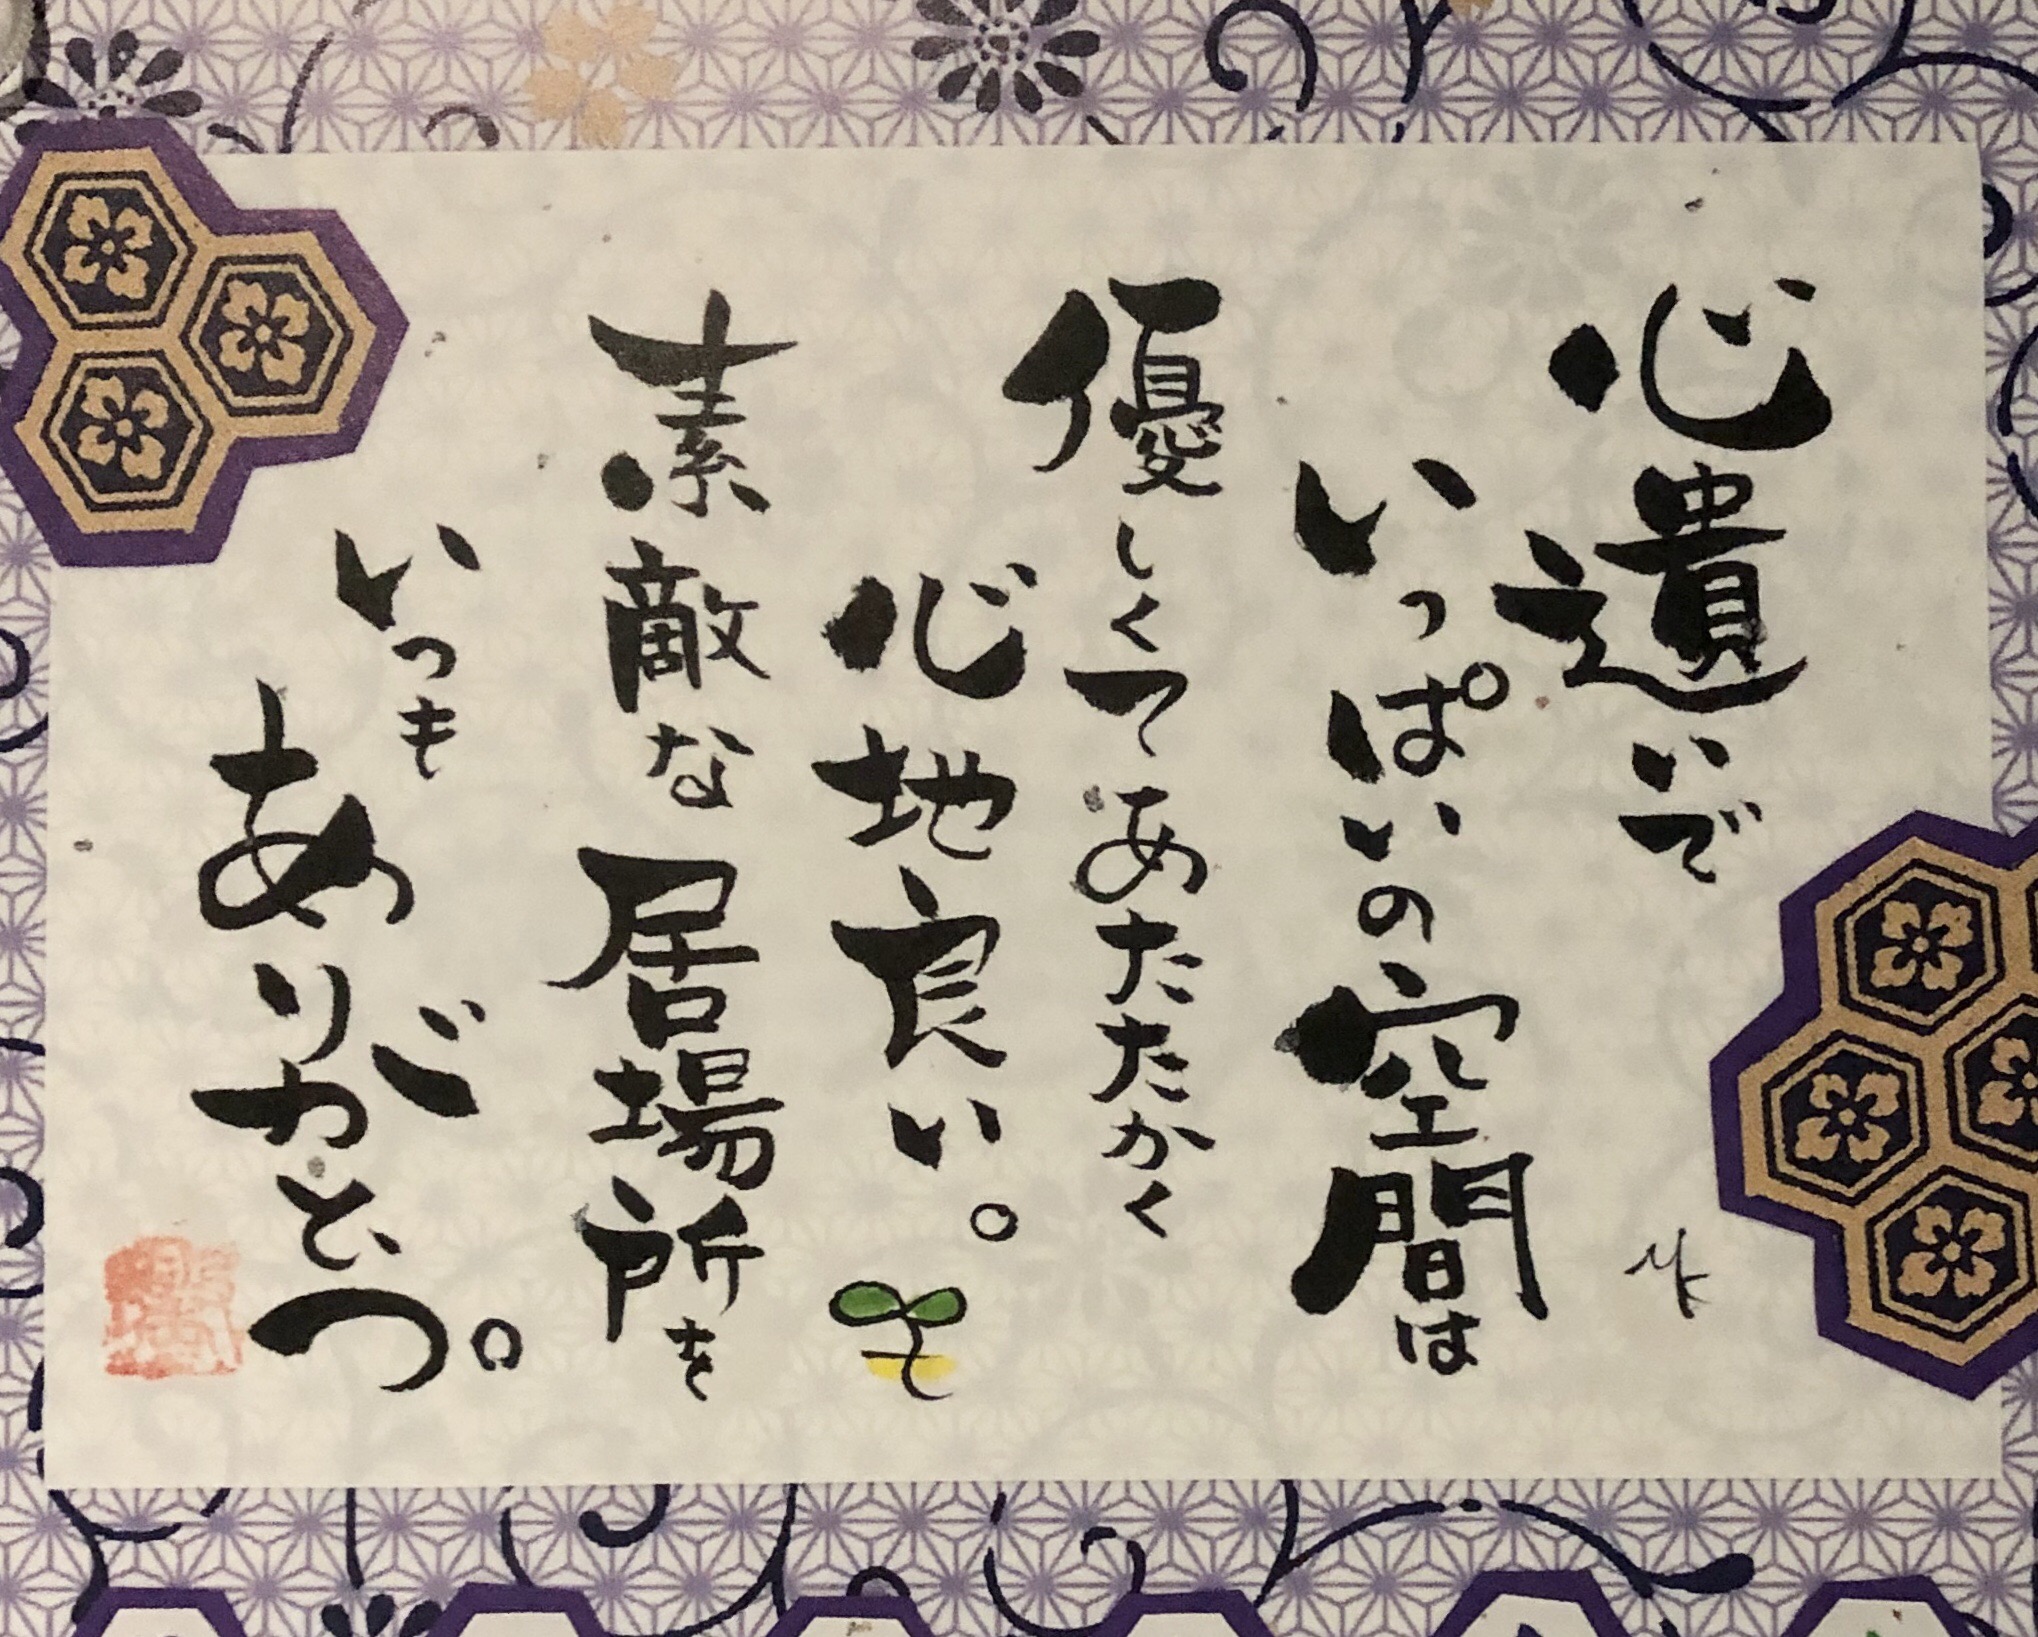 心遣いで
いっぱいの空間は
優しくてあたたかく
心地良い。
素敵な居場所を
いつも
ありがとう。